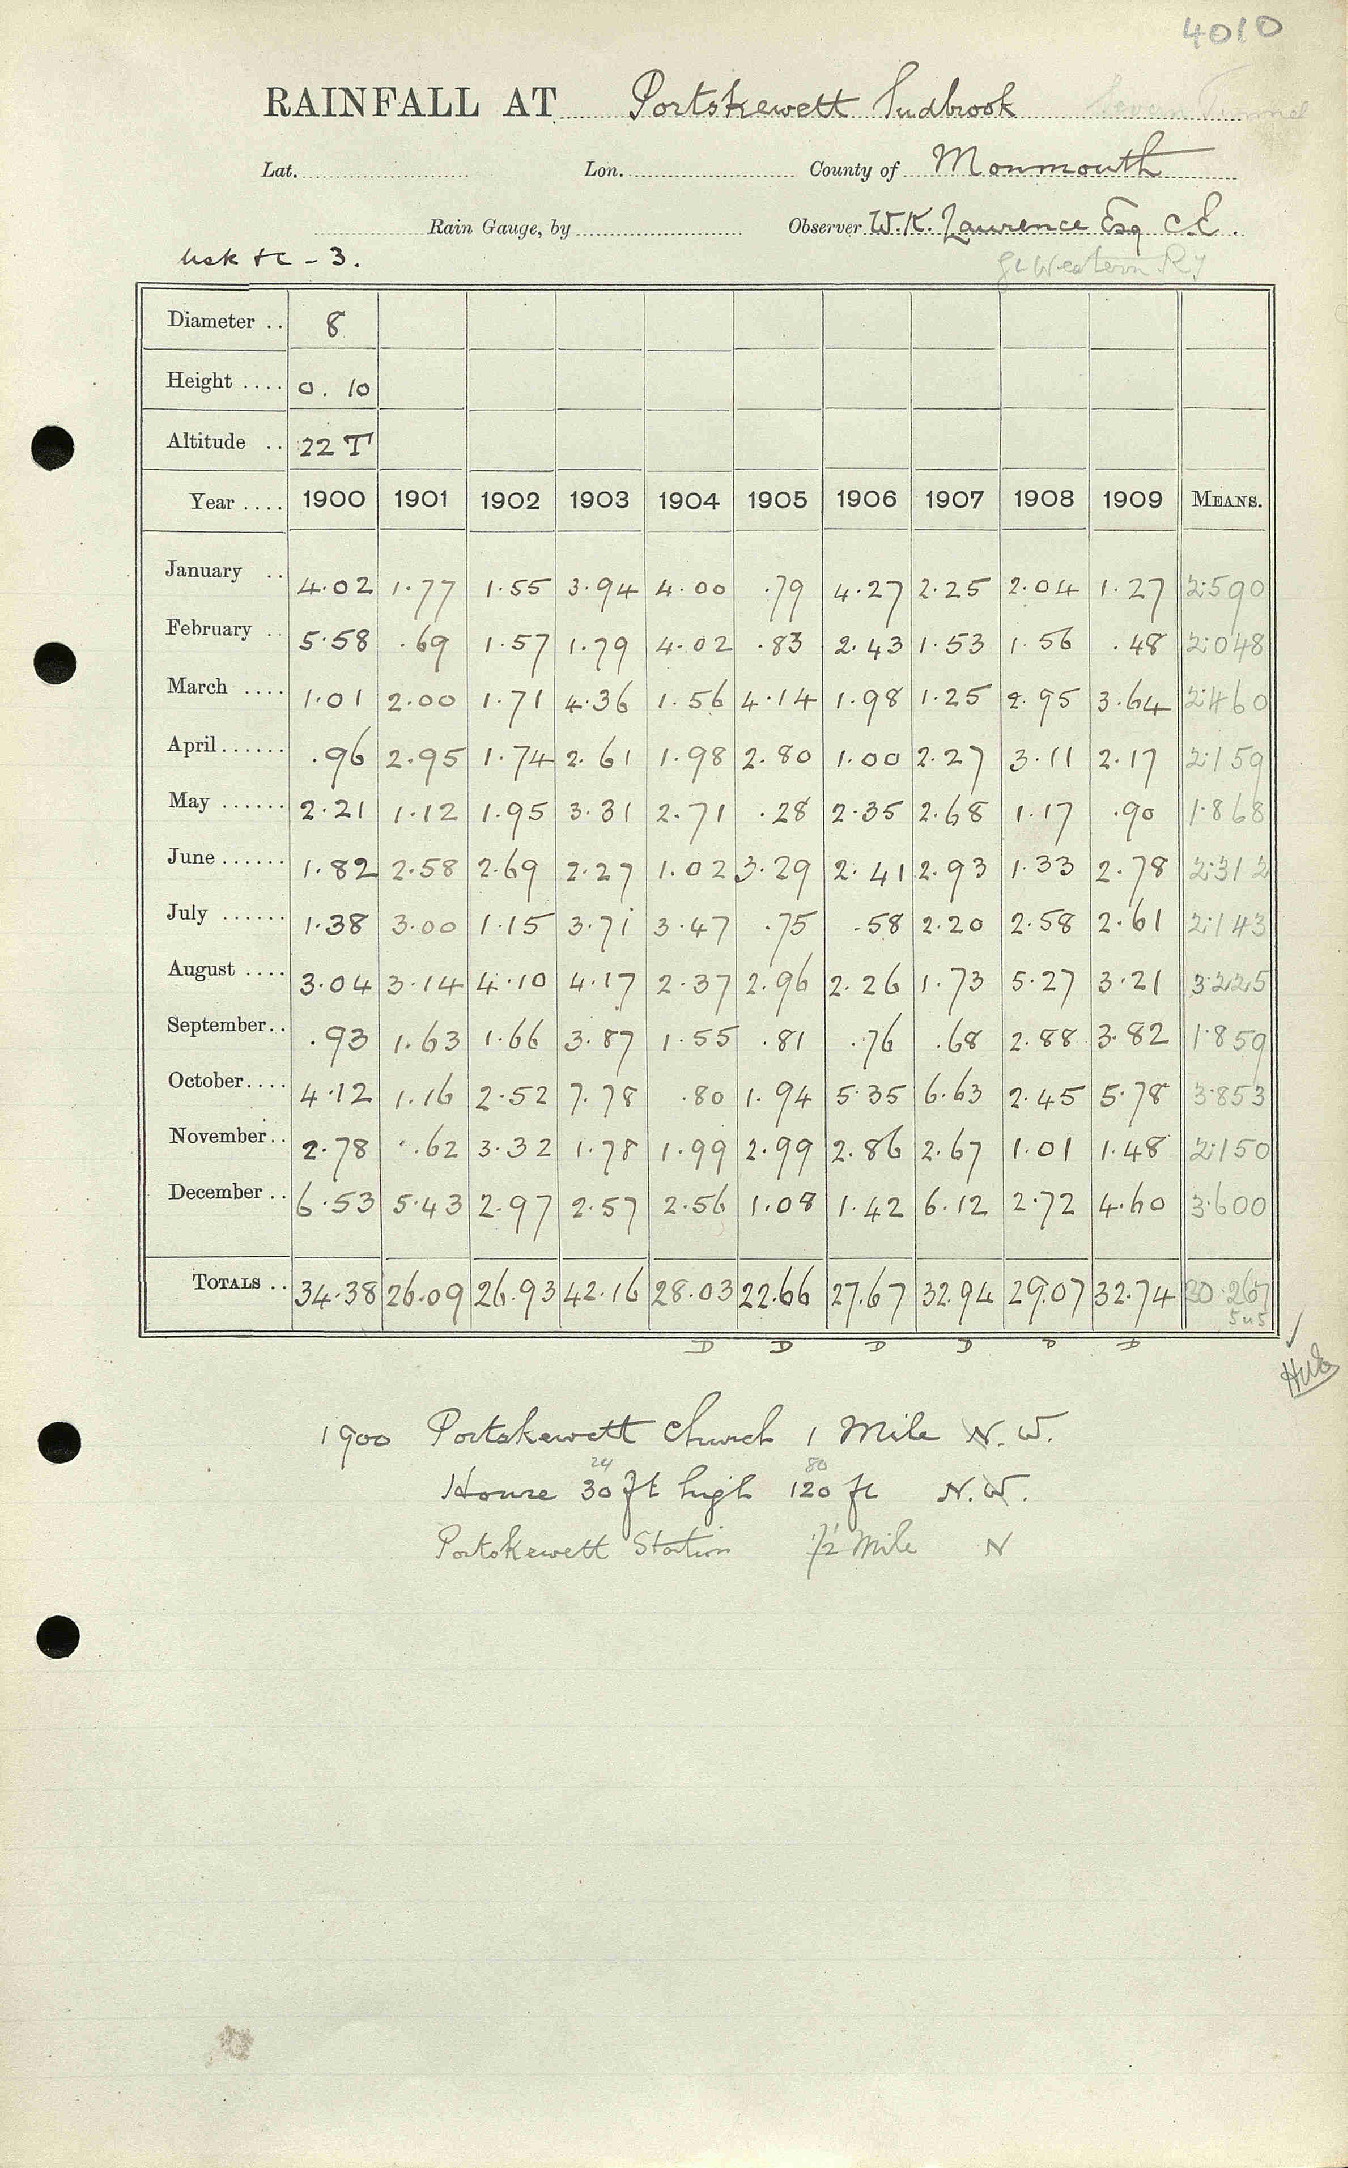 4010
RAINFALL AT Portskewett Sudbrook Severn Tunnel
Lat. Lon. County of Monmouth
Rain Gauge, by Observer W.K. Lawrence Esq C.E.
Usk &c - 3. Gt Western Ry
Diameter .. 8
Height .... 0. 10
Altitude .. 22 T
Year .... 1900 1901 1902 1903 1904 1905 1906 1907 1908 1909 MEANS.
January .. 4.02 1.77 1.55 3.94 4.00 .79 4.27 2.25 2.04 1.27 2.590
February .. 5.58 .69 1.57 1.79 4.02 .83 2.43 1.53 1.56 .48 2.048
March .... 1.01 2.00 1.71 4.36 1.56 4.14 1.98 1.25 2.95 3.64 2.460
April ...... .96 2.95 1.74 2.61 1.98 2.80 1.00 2.27 3.11 2.17 2.159
May ...... 2.21 1.12 1.95 3.31 2.71 .28 2.35 2.68 1.17 .90 1.868
June ...... 1.82 2.58 2.69 2.27 1.02 3.29 2.41 2.93 1.33 2.78 2.312
July ...... 1.38 3.00 1.15 3.71 3.47 .75 .58 2.20 2.58 2.61 2.143
August .... 3.04 3.14 4.10 4.17 2.37 2.96 2.26 1.73 5.27 3.21 3.225
September.. .93 1.63 1.66 3.87 1.55 .81 .76 .68 2.88 3.82 1.859
October.... 4.12 1.16 2.52 7.78 .80 1.94 5.35 6.63 2.45 5.78 3.853
November.. 2.78 .62 3.32 1.78 1.99 2.99 2.86 2.67 1.01 1.48 2.150
December .. 6.53 5.43 2.97 2.57 2.56 1.08 1.42 6.12 2.72 4.60 3.600
TOTALS .. 34.38 26.09 26.93 42.16 28.03 22.66 27.67 32.94 29.07 32.74 30.267
D D D D D D
1900 Portskewett Church 1 Mile N.W.
24 80
House 30 ft high 120 ft N.W.
Portskewett Station 1/2 Mile N